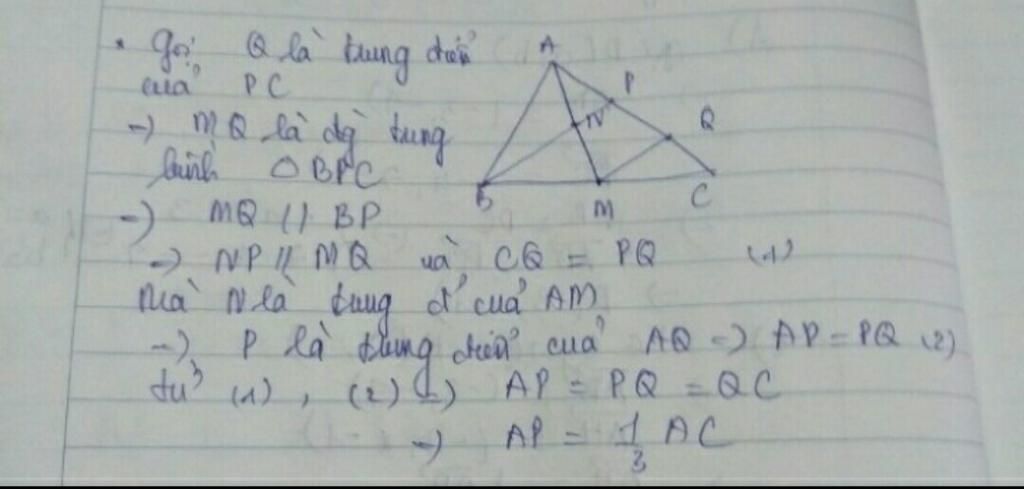 * Gọi Q là trung điểm
của PC
→ MQ là đg trung
bình △BPC
→ MQ // BP
→ NP // MQ và CQ = PQ (1)
Mà N là trung đ' của AM
→ P là trung điểm của AQ → AP = PQ (2)
từ (1), (2) → AP = PQ = QC
→ AP = 1/3 AC
A
P
N
Q
B
M
C